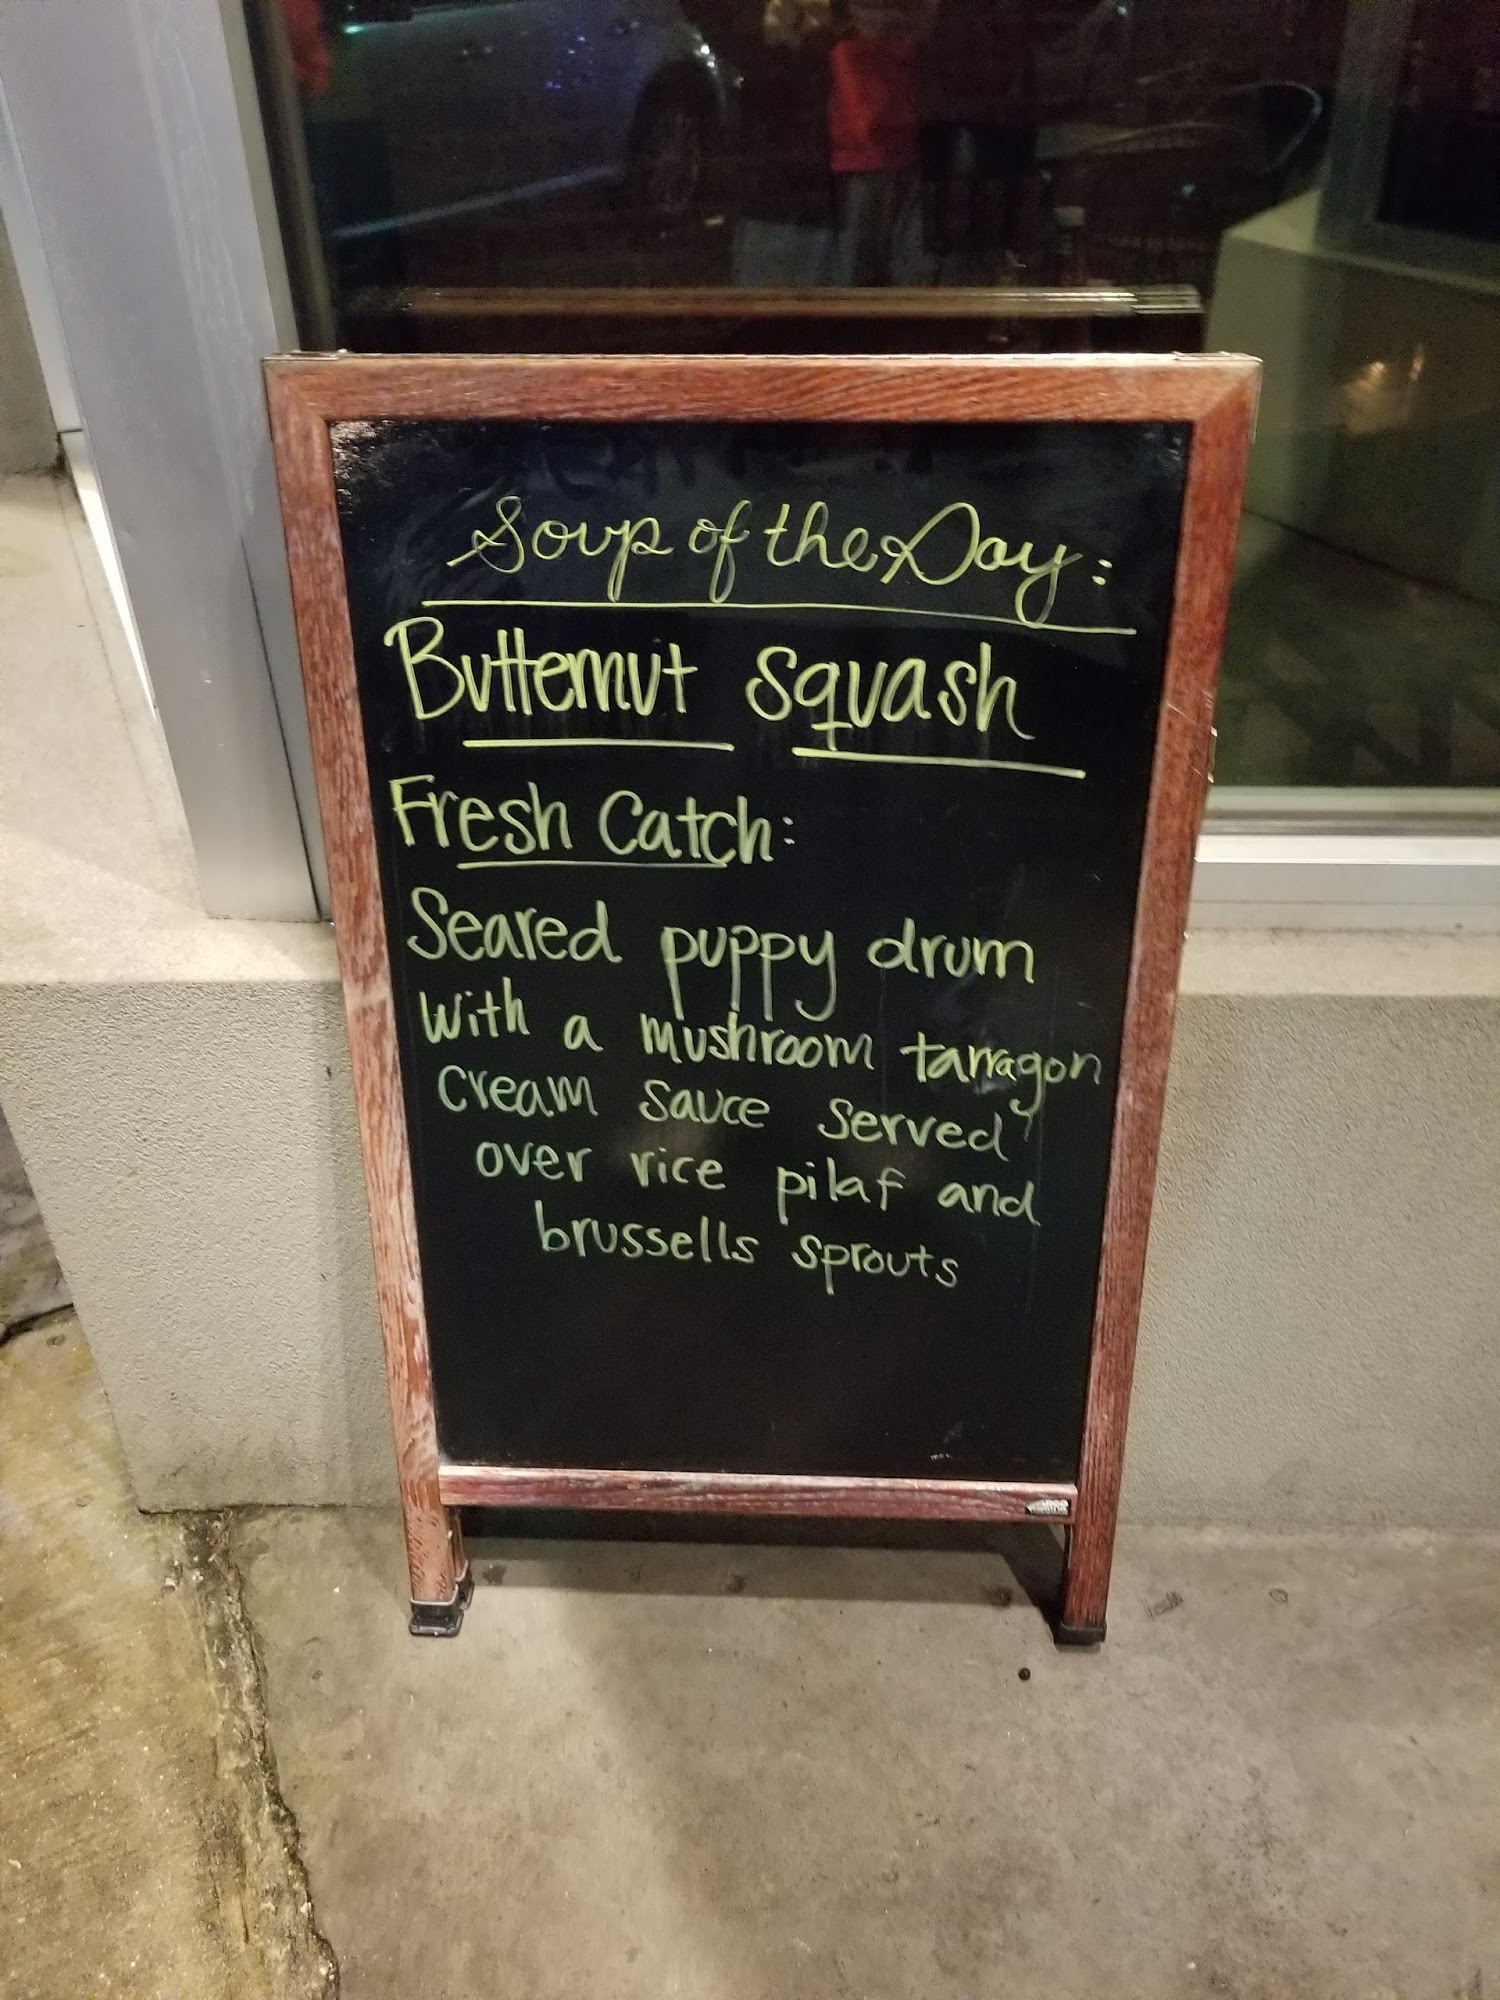 Soup of the Day:
Butternut squash
Fresh Catch:
Seared puppy drum
with a mushroom tarragon
cream sauce served
over rice pilaf and
brussells sprouts